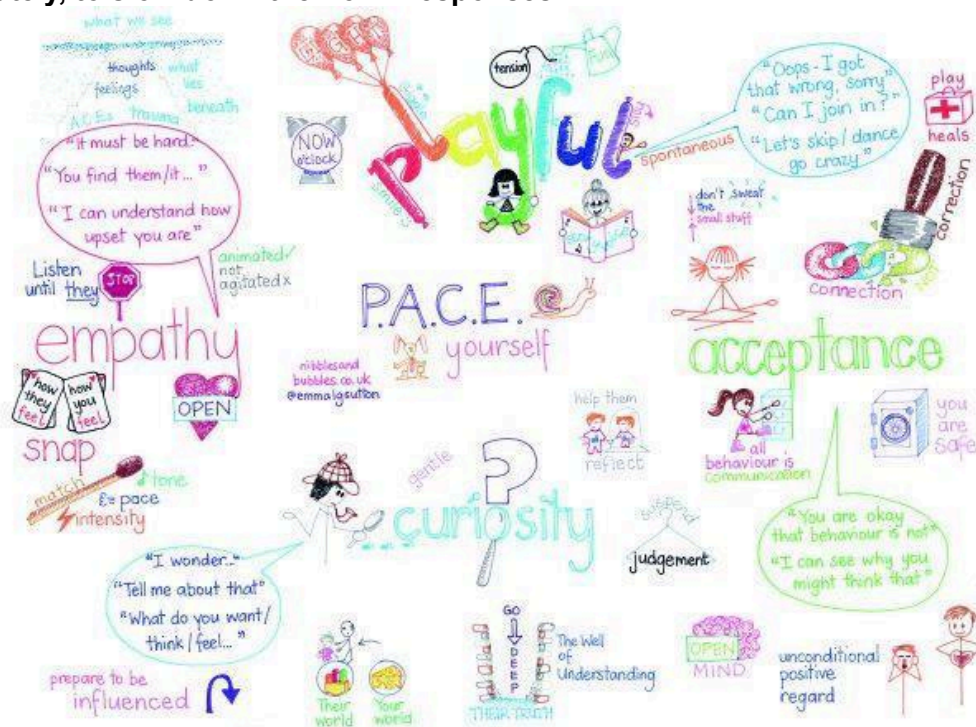 what we see
thoughts
feelings
what
lies
beneath
A.C.Es
trauma
"It must be hard."
"You find them/it..."
"I can understand how
upset you are"
Listen
until they
STOP
animated ✓
not
agitated x
empathy
how
they
feel
how
you
feel
snap
OPEN
match
tone
pace
intensity
NOW
o'clock
playful
smile
tension
FUN
spontaneous
"Oops - I got
that wrong, sorry"
"Can I join in?"
"Let's skip/dance
go crazy"
play
heals
don't sweat
the
small stuff
correction
connection
P.A.C.E.
yourself
nibblesand
bubbles.co.uk
@emmalgsutton
acceptance
help them
reflect
all
behaviour is
communication
you
are
safe
"You are okay
that behaviour is not"
"I can see why you
might think that"
gentle
?
...curiosity
suspend
judgement
"I wonder..."
"Tell me about that"
"What do you want/
think/feel..."
prepare to be
influenced
Their
world
Your
world
GO
DEEP
THEIR TRUTH
The Well
of
Understanding
OPEN
MIND
unconditional
positive
regard